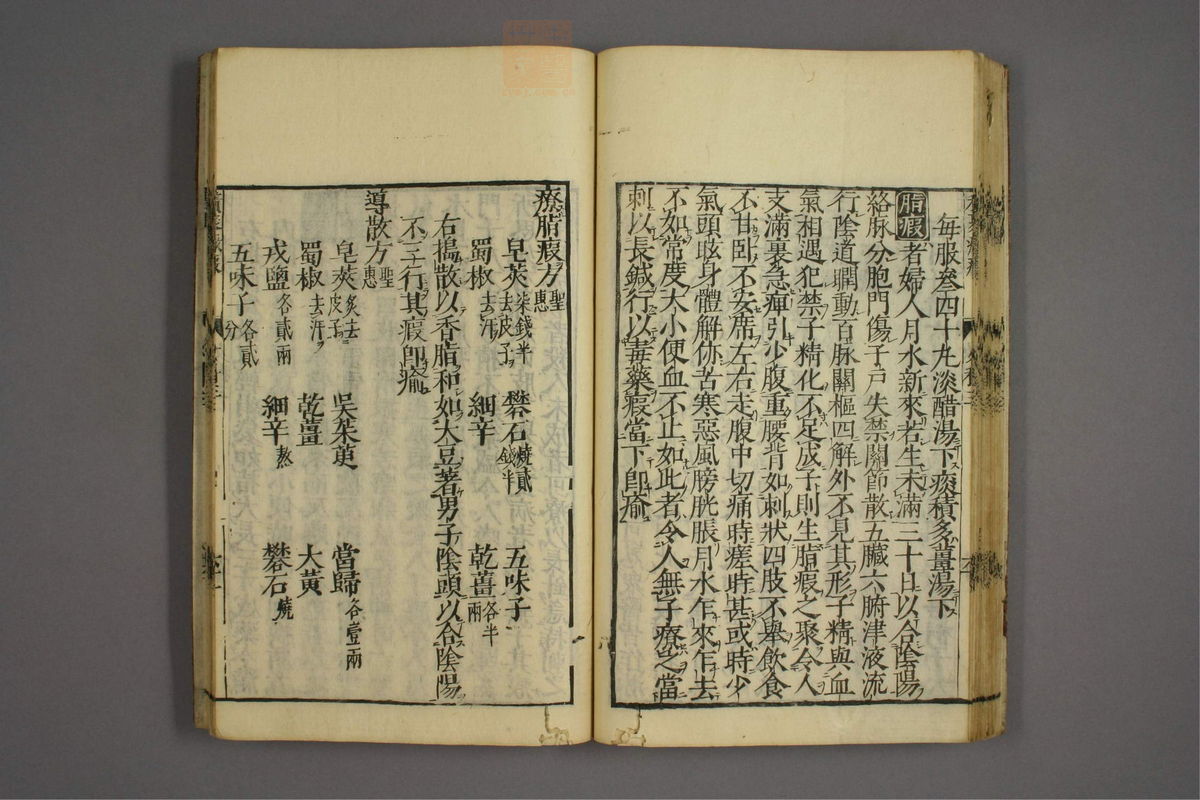 毎服叄四十丸淡醋湯下痰積多薑湯下
脂瘕者婦人月水新來若生未滿三十日以合陰陽
絡脉分胞門傷子戸失禁關節散五臟六腑津液流
行陰道瞤動百脉關樞四解外不見其形子精與血
氣相遇犯禁子精化不足成子則生脂瘕之聚令人
支滿裏急痺引少腹重腰背如刺狀四肢不舉飲食
不甘臥不安席左右走腹中切痛時瘥時甚或時少
氣頭眩身體解㑊苦寒惡風膀胱脹月水乍來乍去
不如常度大小便血不止如此者令人無子療之當
刺以長鍼行以毒藥瘕當下卽瘉
療脂瘕方聖惠
皂莢柒錢半去皮子 礬石燒貳錢半 五味子
蜀椒去汗 細辛 乾薑各半兩
右搗散以香脂和如大豆著男子陰頭以合陰陽
不三行其瘕卽瘉
導散方聖惠
皂莢炙去皮子 吳茱萸 當歸各壹兩
蜀椒去汗 乾薑 大黃
戎鹽各貳兩 細辛熬 礬石燒
五味子各貳分